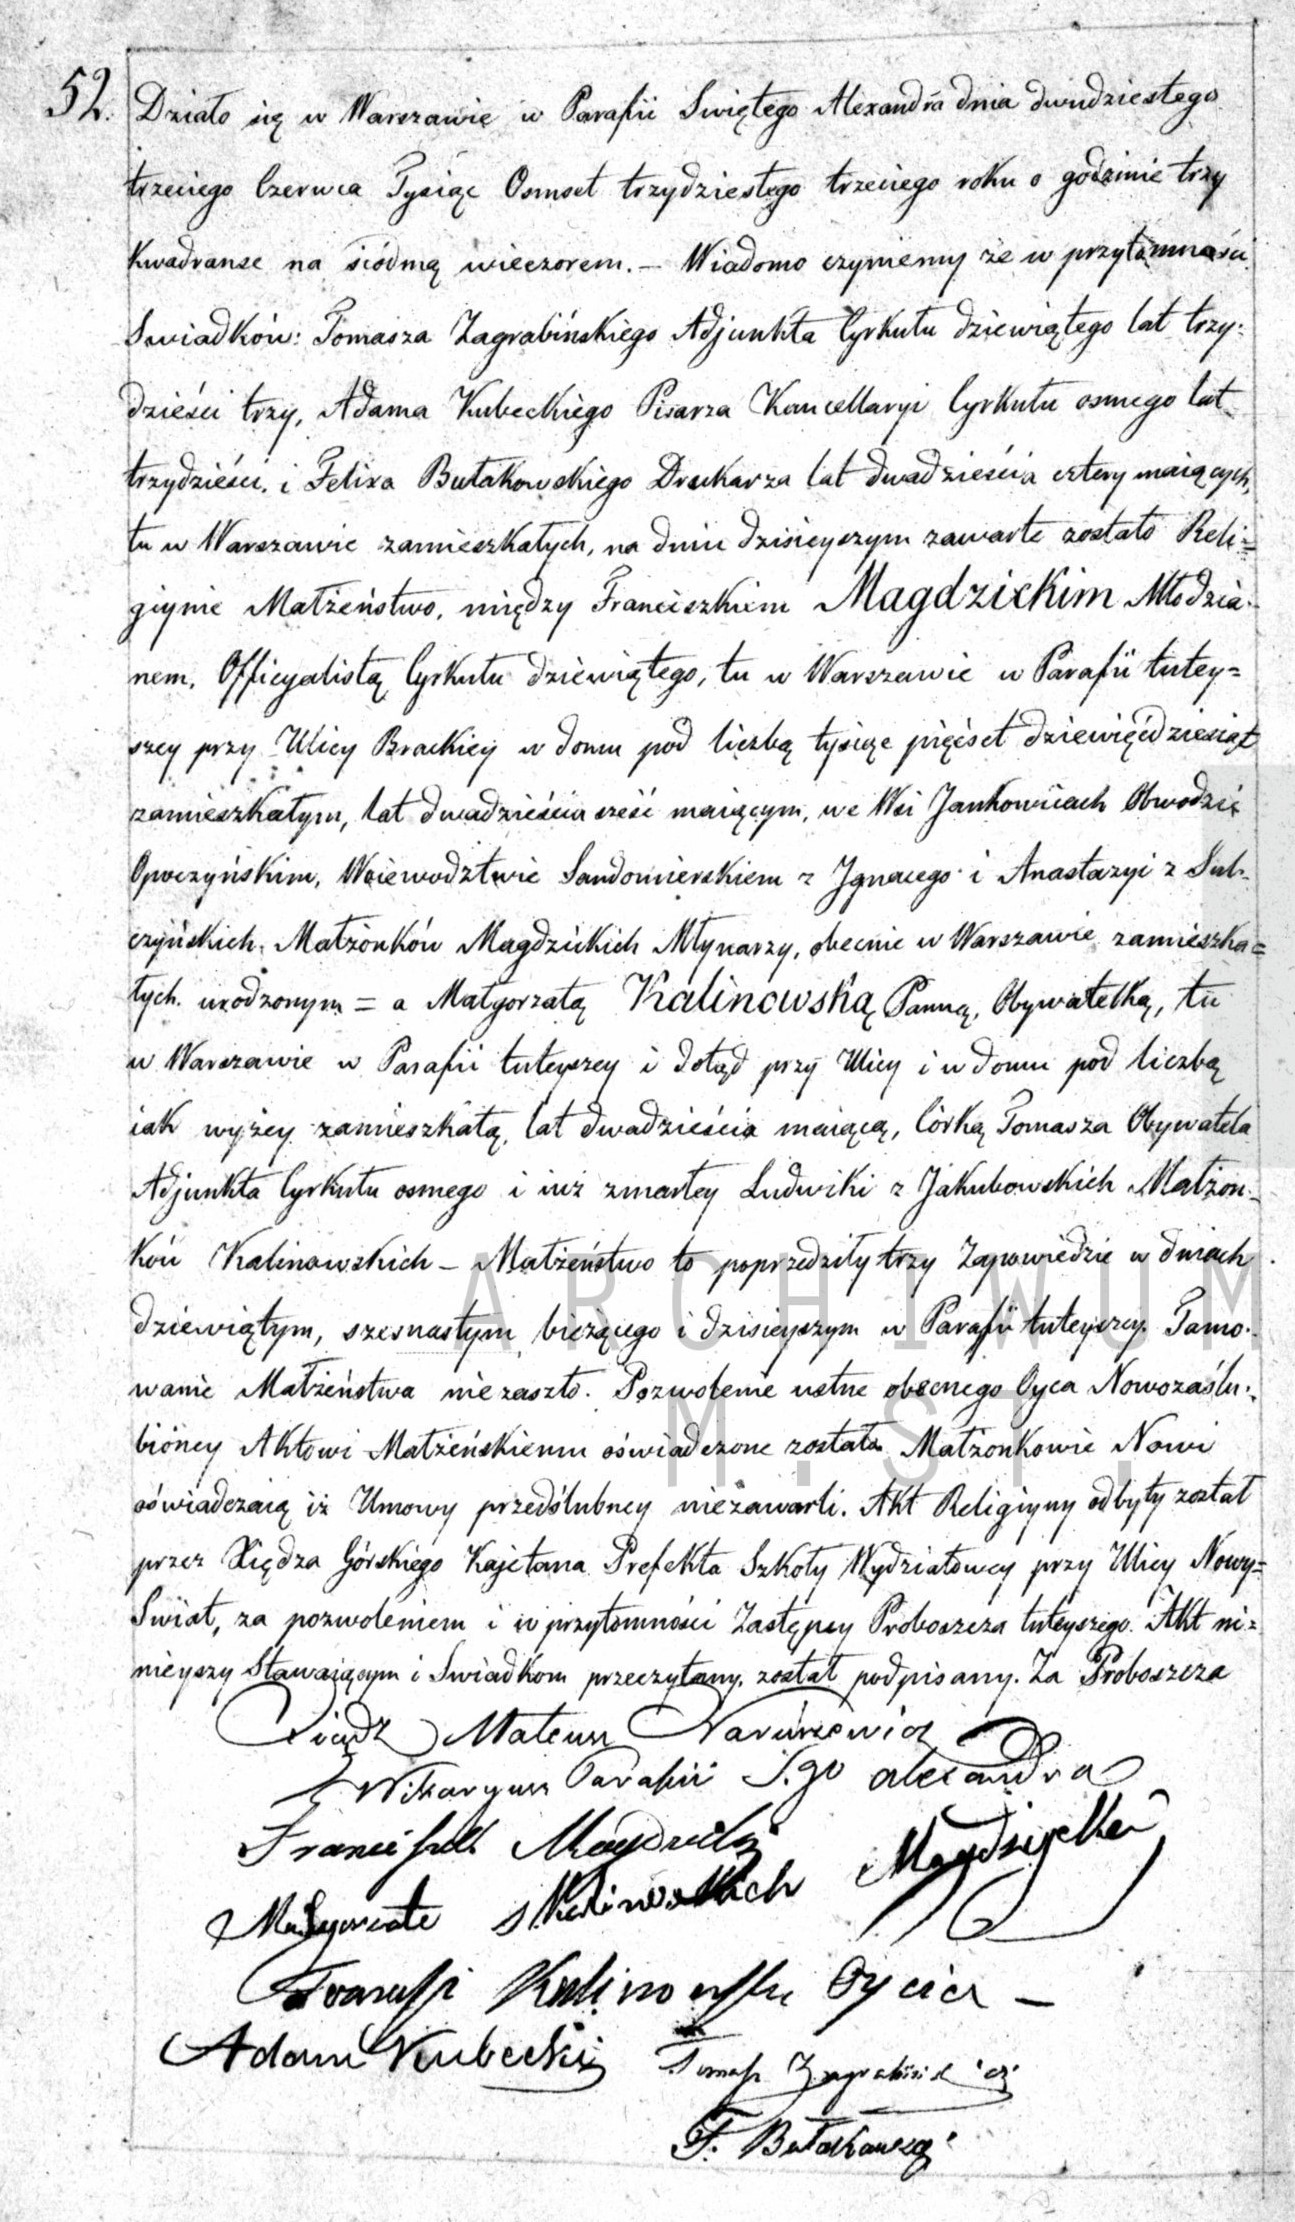 52. Działo się w Warszawie w Parafii Swiętego Alexandra dnia dwudziestego
trzeciego Czerwca Tysiąc Osmset trzydziestego trzeciego roku o godzinie trzy
kwadranse na siódmą wieczorem. – Wiadomo czyniemy że w przytomności
Swiadków: Tomasza Zagrabińskiego Adjunkta Cyrkułu dziewiątego lat trzy-
dzieści trzy, Adama Kubeckiego Pisarza Kancellaryi Cyrkułu osmego lat
trzydzieści, i Felixa Bułakowskiego Drukarza lat dwadzieścia cztery maiących,
tu w Warszawie zamieszkałych, na dniu dzisieyszym zawarte zostało Reli=
giyne Małżeństwo, między Franciszkiem Magdzickim Młodzia-
nem, Officyalistą Cyrkułu dziewiątego, tu w Warszawie w Parafii tutey=
szey przy Ulicy Brackiey w domu pod liczbą tysiąc pięćset dziewięćdziesiąt
zamieszkałym, lat dwadzieścia sześć maiącym, we Wsi Jankowicach Obwodzie
Opoczyńskim, Woiewodztwie Sandomierskiem z Jgnacego i Anastazyi z Sul-
czyńskich Małżonków Magdzickich Młynarzy, obecnie w Warszawie zamieszka=
łych urodzonym = a Małgorzatą Kalinowską Panną, Obywatelką, tu
w Warszawie w Parafii tuteyszey i dotąd przy Ulicy i w domu pod liczbą
iak wyżey zamieszkałą, lat dwadzieścia maiącą, Córką Tomasza Obywatela
Adjunkta Cyrkułu osmego i iuż zmarłey Ludwiki z Jakubowskich Małżon-
ków Kalinowskich – Małżeństwo to poprzedziły trzy Zapowiedzie w dniach
dziewiątym, szesnastym bieżącego i dzisieyszym w Parafii tuteyszey. Tamo-
wanie Małżeństwa nie zaszło. Pozwolenie ustne obecnego Oyca Nowozaślu-
bióney Aktowi Małżeńskiemu oświadczone zostało Małżonkowie Nowi
oświadczaią iż Umowy przedślubney niezawarli. Akt Religiyny odbyty został
przez Xiędza Górskiego Kajetana Prefekta Szkoły Wydziałowey przy Ulicy Nowy=
Swiat, za pozwoleniem i w przytomności Zastępcy Proboszcza tuteyszego. Akt ni=
nieyszy Stawaiącym i Swiadkom przeczytany, został podpisany. Za Proboszcza
Xiądz Mateusz Naruszewicz
Wikaryusz Parafii S.go Alexandra
Franciszek Magdzicki
Małgorzata z Kalinowskich Magdzicka
Tomasz Kalinowski Oyciec –
Adam Kubecki Tomasz Zagrabiński
F. Bułakowski
ARCHIWUM
M. ST.